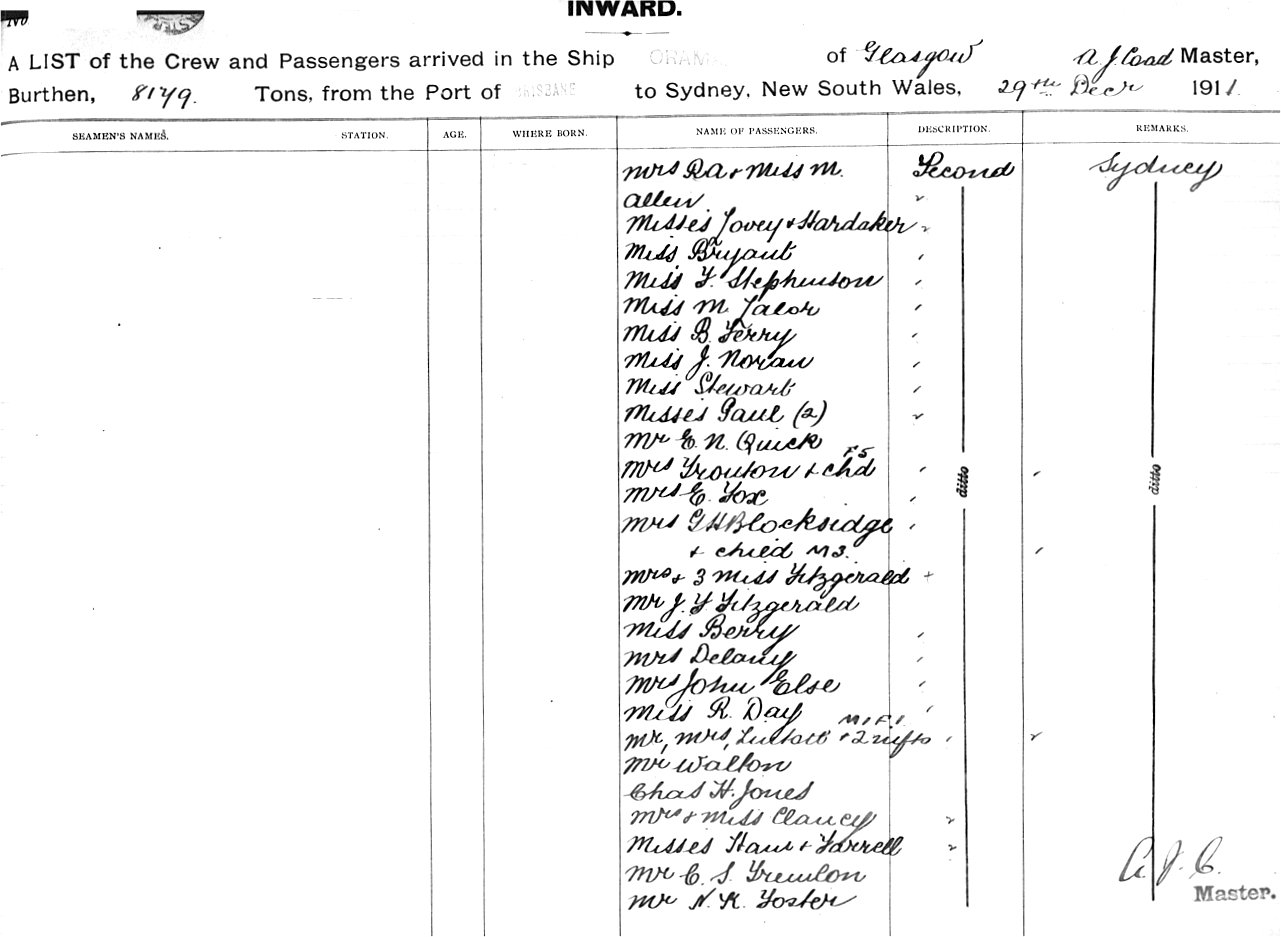 No
INWARD.
A LIST of the Crew and Passengers arrived in the Ship ORAMA of Glasgow A. J. Coad Master,
Burthen, 8179. Tons, from the Port of BRISBANE to Sydney, New South Wales, 29th Decr 1911.
SEAMEN'S NAMES. STATION. AGE. WHERE BORN. NAME OF PASSENGERS. DESCRIPTION. REMARKS.
Mrs RA & Miss M. Second Sydney
Allen
Misses Tovey & Hardaker
Miss Bryant
Miss F. Stephenson
Miss M. Talor
Miss B. Ferry
Miss J. Noran
Miss Stewart
Misses Paul (2)
Mr E. N. Quick
F 5
Mrs Trouton & chd ditto ditto
Mrs E. Fox
Mrs G H Blocksidge
& child M3.
Mrs & 3 Miss Fitzgerald
Mr J. F Fitzgerald
Miss Berry
Mrs Delany
Mrs John Else
Miss R. Day
M 1 F. 1
Mr, Mrs, & 2
Mr Walton
Chas H. Jones
Mrs & Miss Clancy
Misses & Farrell
Mr C. S. A. J. C.
Mr N. K. Foster Master.